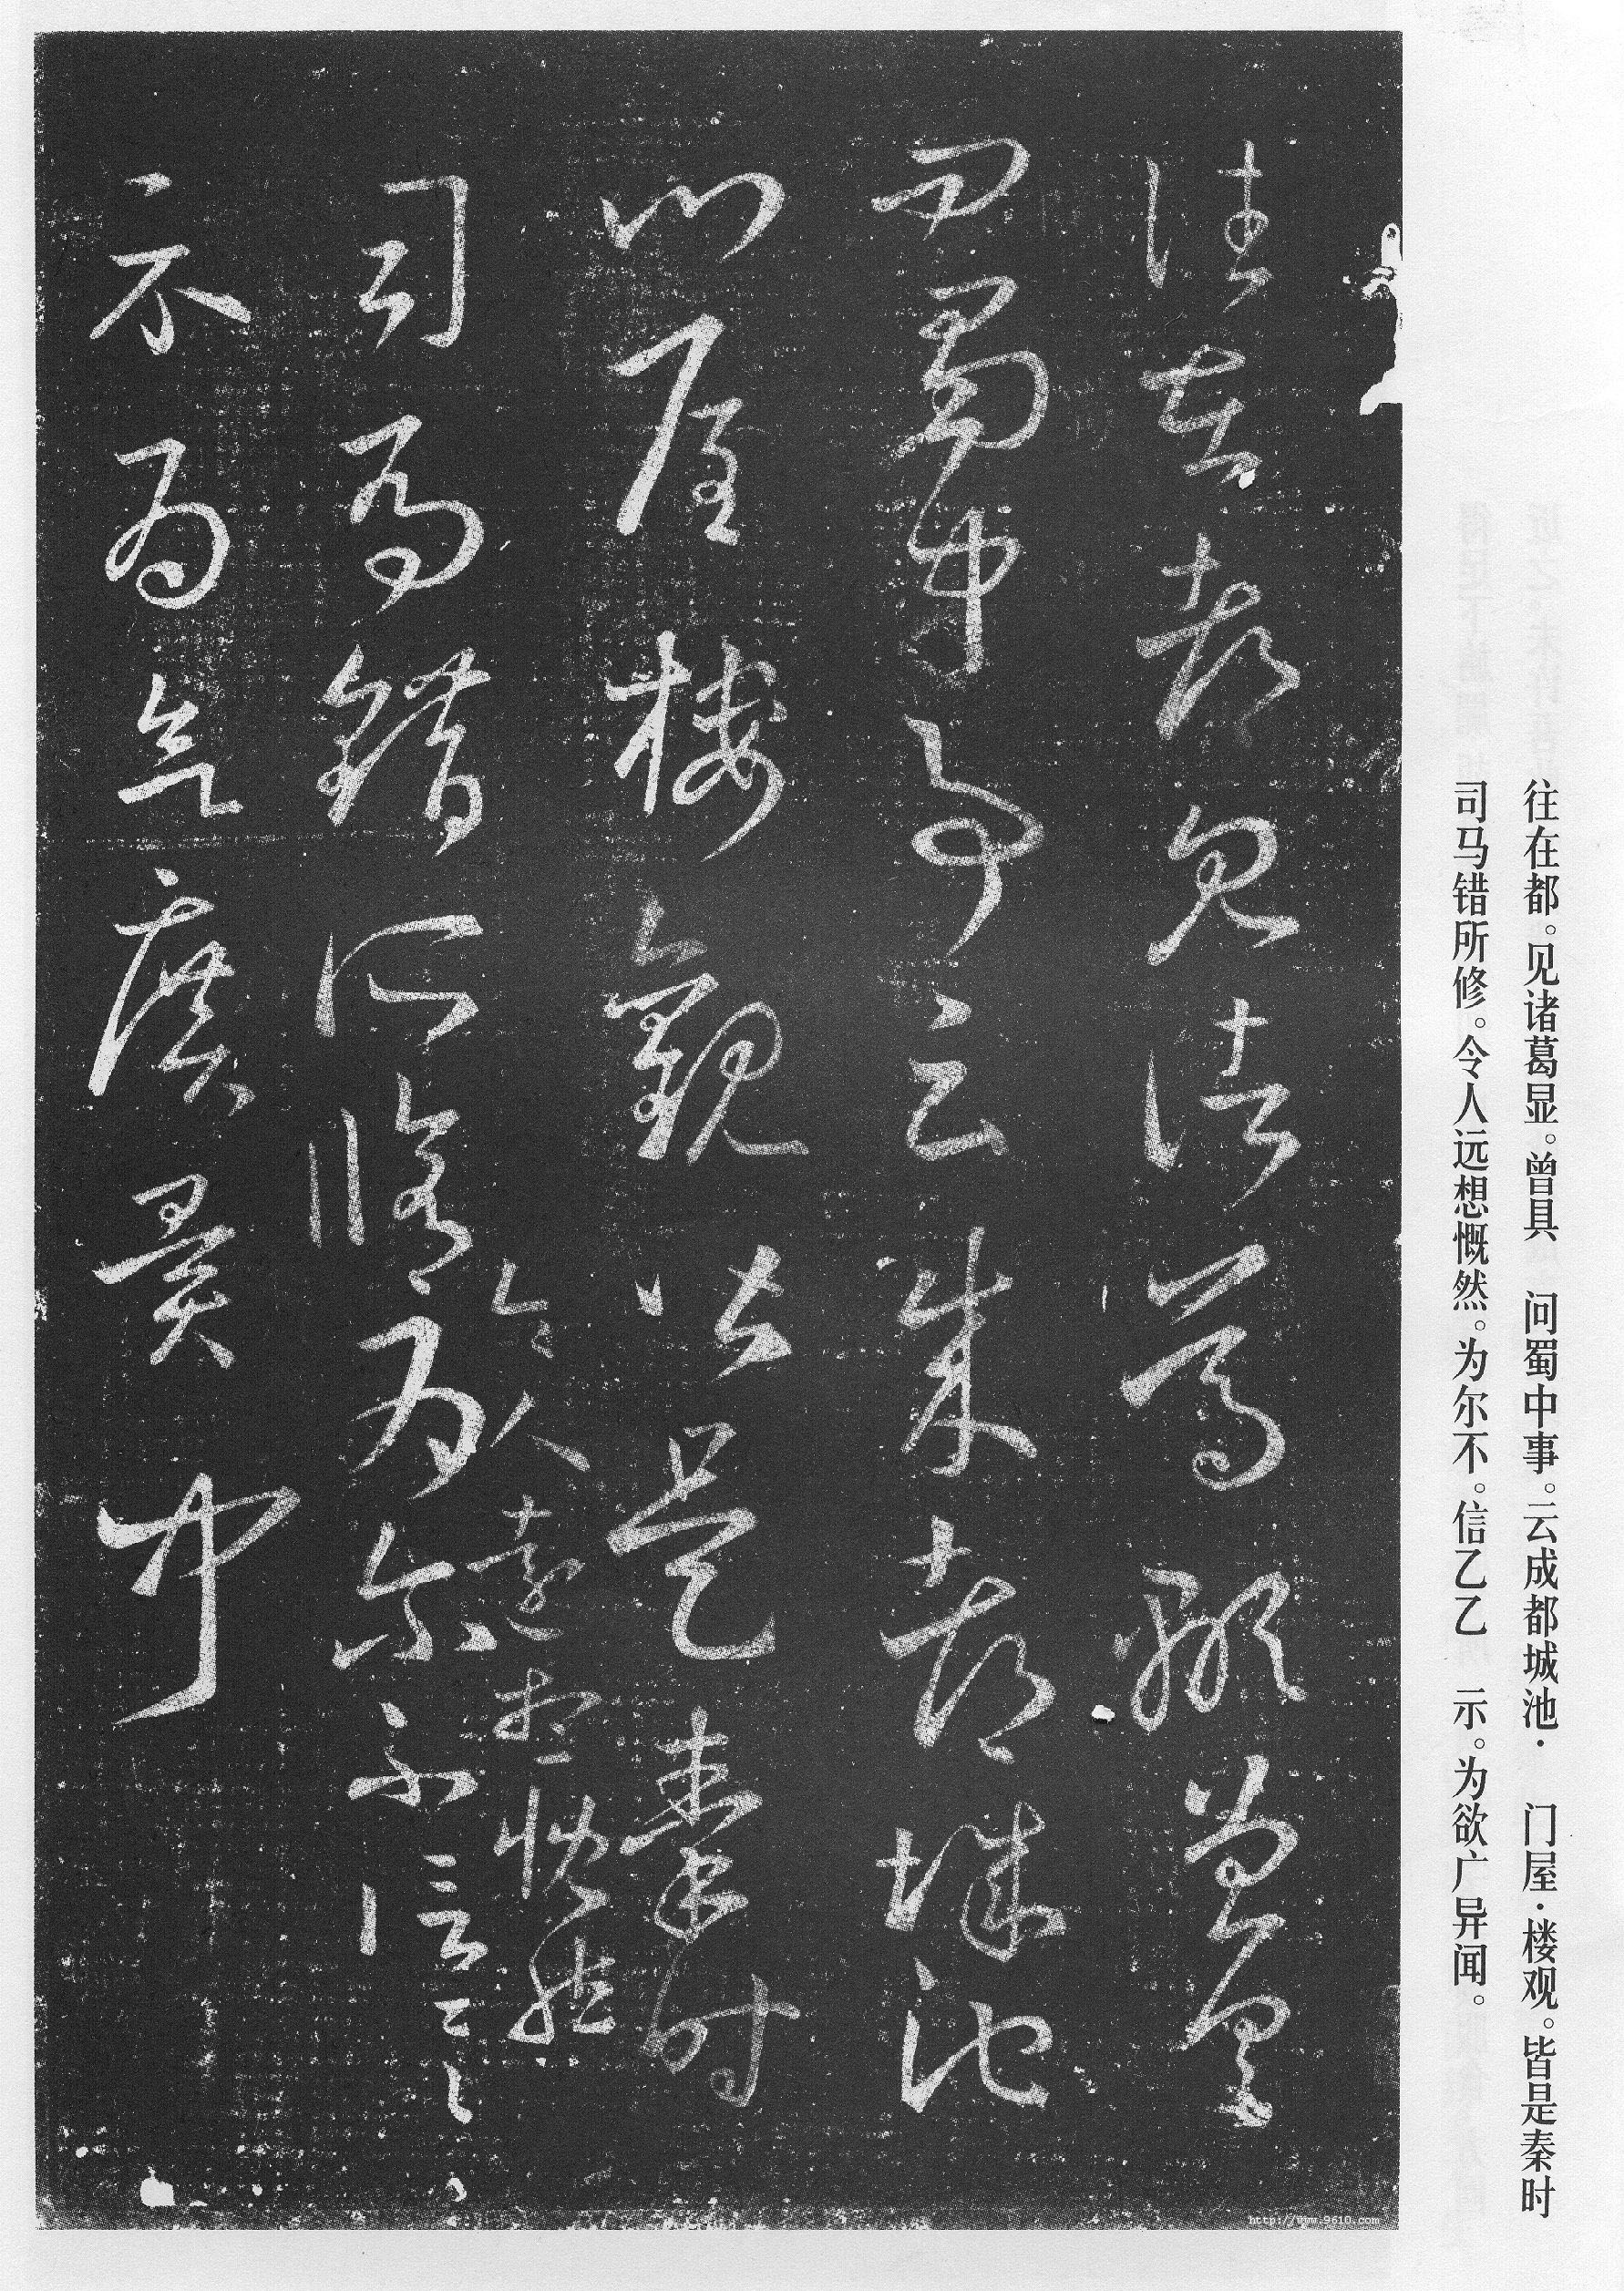 往在都。见诸葛显。曾具　问蜀中事。云成都城池·　门屋·楼观。皆是秦时
司马错所修。令人远想慨然。为尔不。信乙乙　示。为欲广异闻。
往在都見諸葛顯曾具
問蜀中事云成都城池
門屋樓觀皆是秦時
令人遠想慨然
司馬錯所脩為爾不信乙乙
示為欲廣異聞
http://www.9610.com